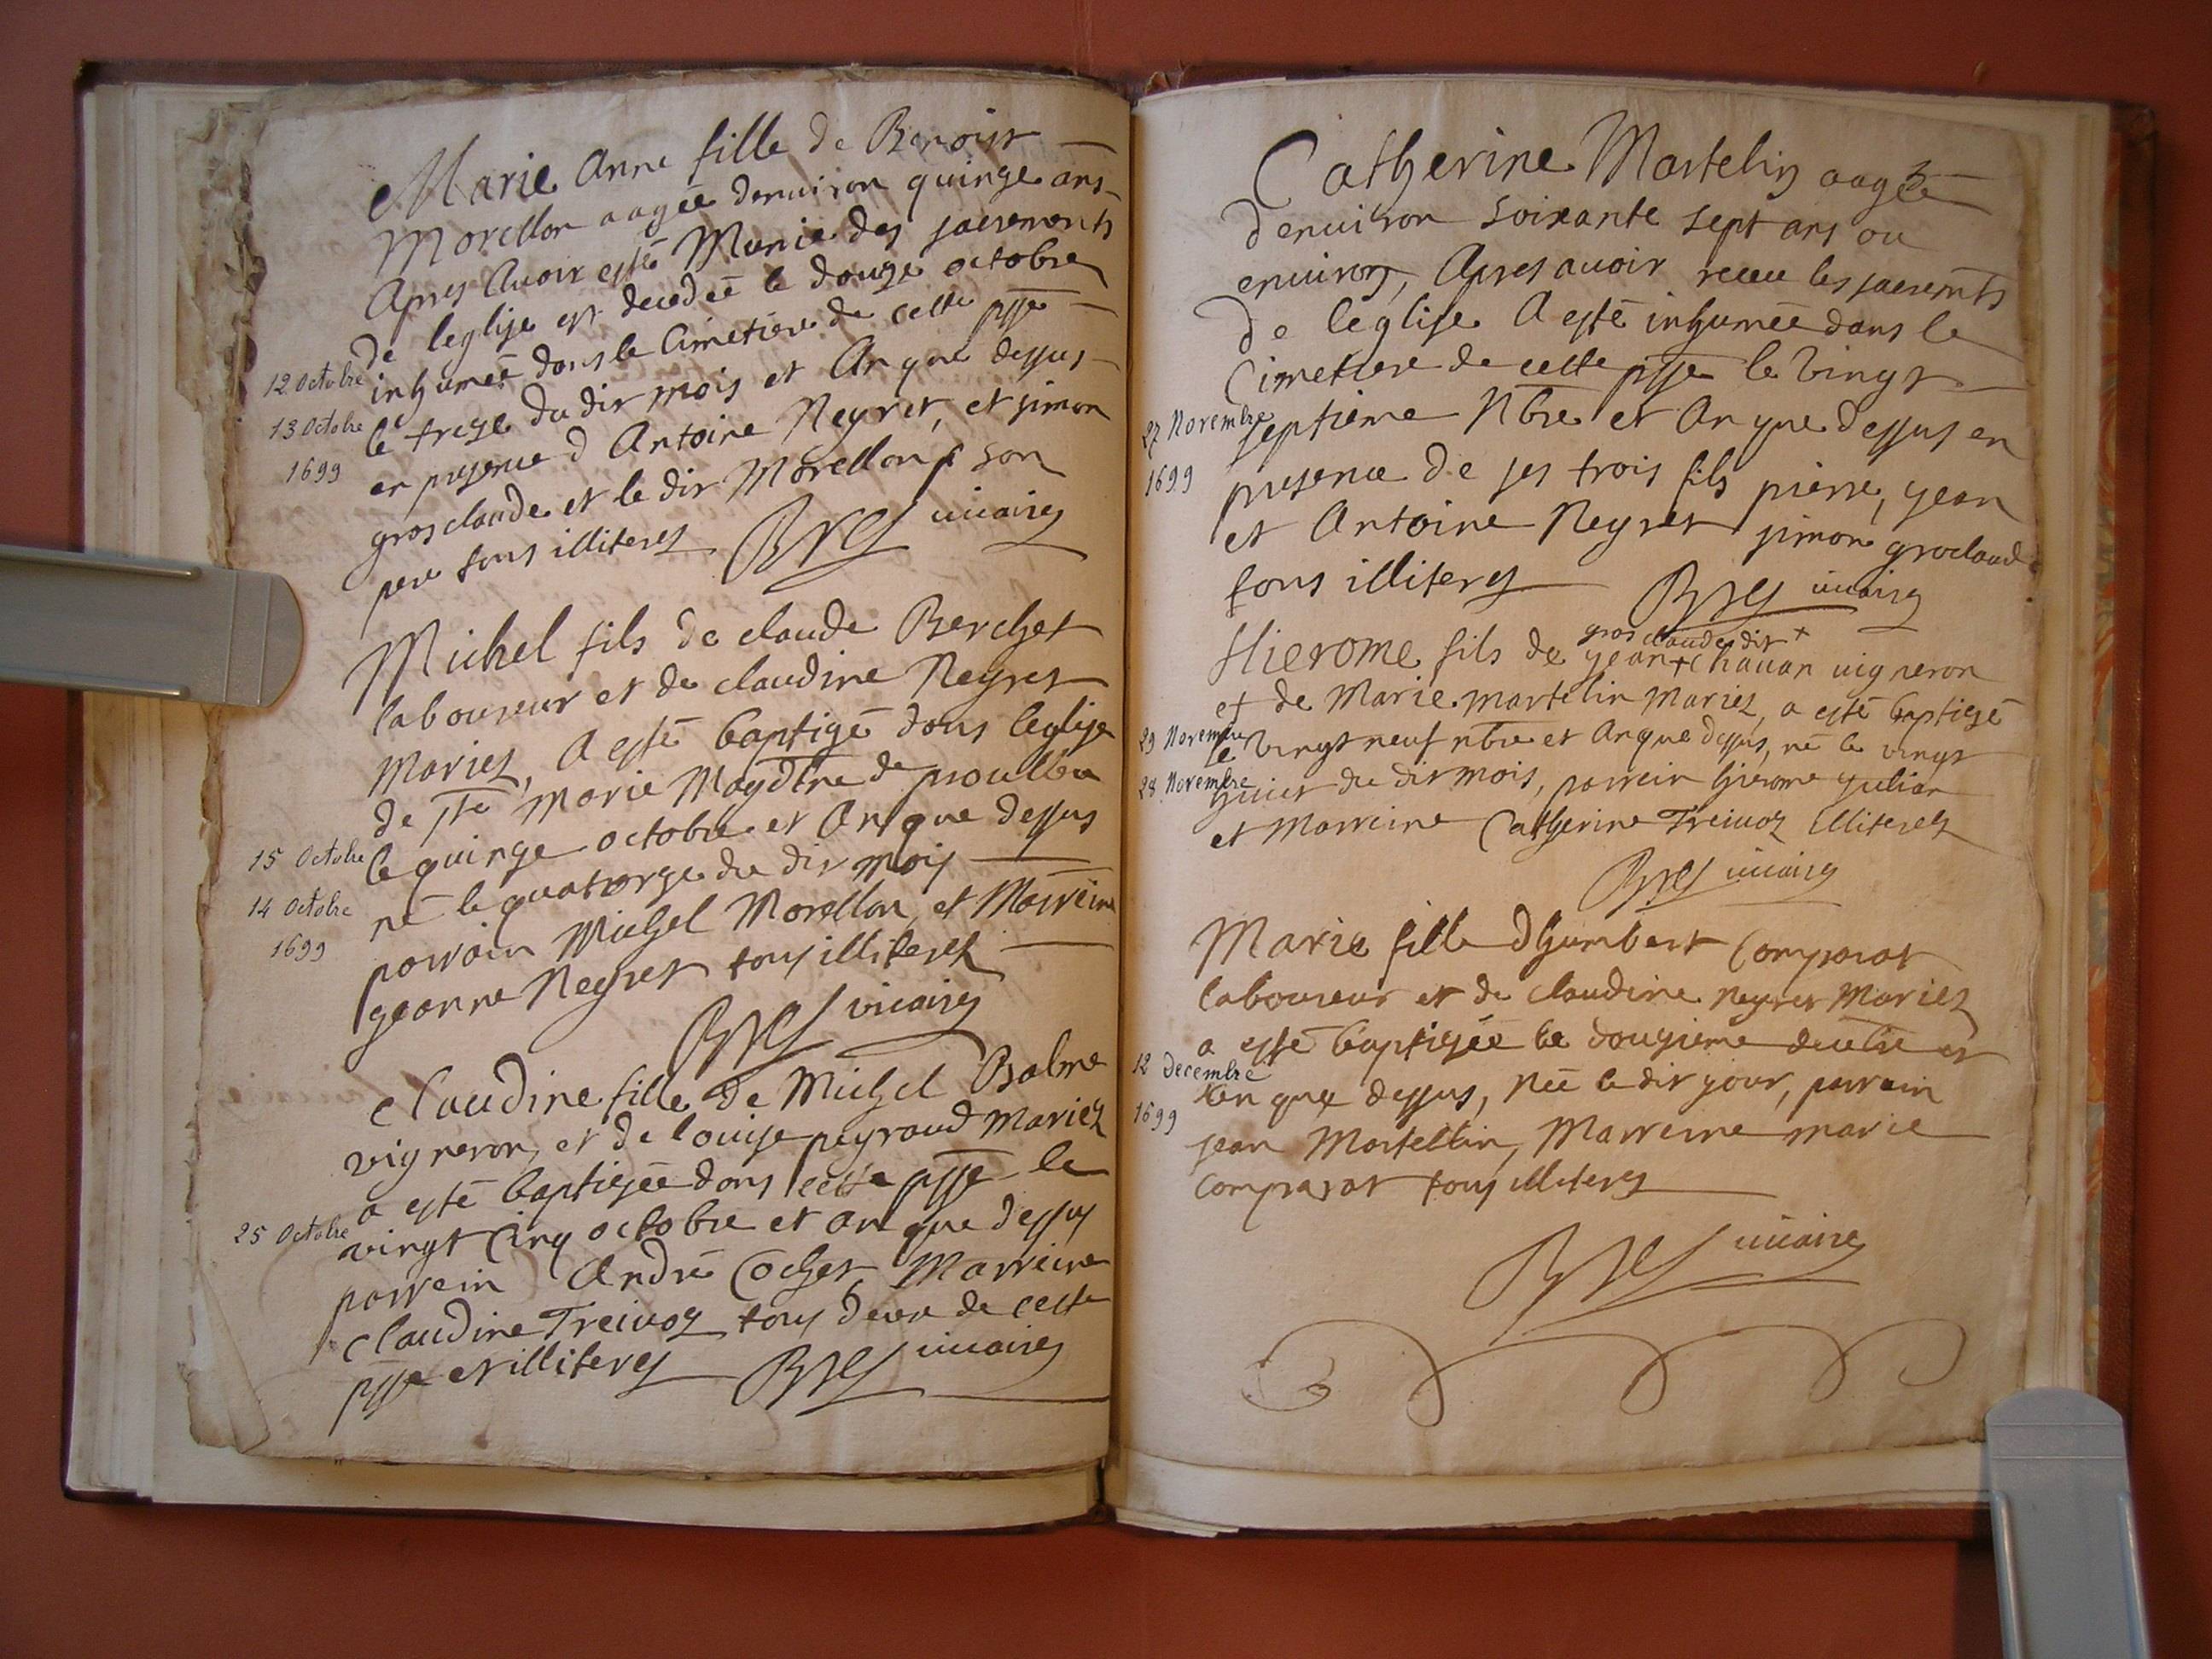 Marie Anne fille de Benoist
Morellon aagée denuiron quinze ans
Apres Auoir esté Munie des sacrements
de leglise est decedée le douze octobre
12 Octobre
inhumée dans le Cimetiere de cette psse
13 Octobre
le treze du dit mois et An que dessus
1699
en presence d Antoine Neyret, et simon
grosclaude et le dit Morellon son
pere tous illiteres Bres uicaires
Michel fils de claude Berchet
laboureur et de claudine Neyret
Mariez, A esté baptizé dans leglise
de Ste Marie Magdlne de proulieu
15 Octobre
le quinze octobre et An que dessus
14 Octobre
né le quatorze du dit mois
1699
parrain Michel Morellon, et Marreine
Jeanne Neyret tous illiterez
Bres vicaires
Claudine fille de Michel Balme
vigneron, et de louise peyraud Mariez
a esté baptizée dans cette psse le
25 Octobre
vingt Cinq octobre et an que dessus
parrein André Cochet, Marreine
Claudine Treiuoz tous deux de cette
psse et illiteres Bres uicaires
3
Catherine Martelin aagée
denuiron soixante sept ans ou
enuiron, Apres auoir receu les sacremts
de leglise A esté inhumée dans le
Cimetiere de cette psse le vingt
27 Novembre
septieme Nbre et An que dessus en
1699
presence de ses trois fils pierre, Jean
et Antoine Neyret simon groclaude
tous illiteres Bres uicaires
gros claude dit +
Hierome fils de Jean + Chauan uigneron
et de Marie martelin Mariez, a esté baptizé
29 Novembre
le vingt neuf nbre et An que dessus, né le vingt
28 Novembre
huict du dit mois, parrein hierome Julian
et Marreine Catherine Treiuoz illiterez
Bres uicaires
Marie fille dhumbert Comparat
laboureur et de claudine Neyret Mariez
a esté baptizée le douzieme decebre et
12 Decembre
An que dessus, née le dit jour, parrain
1699
jean Martellin, Marreine marie
Comparat tous illiteres
Bres uicaires